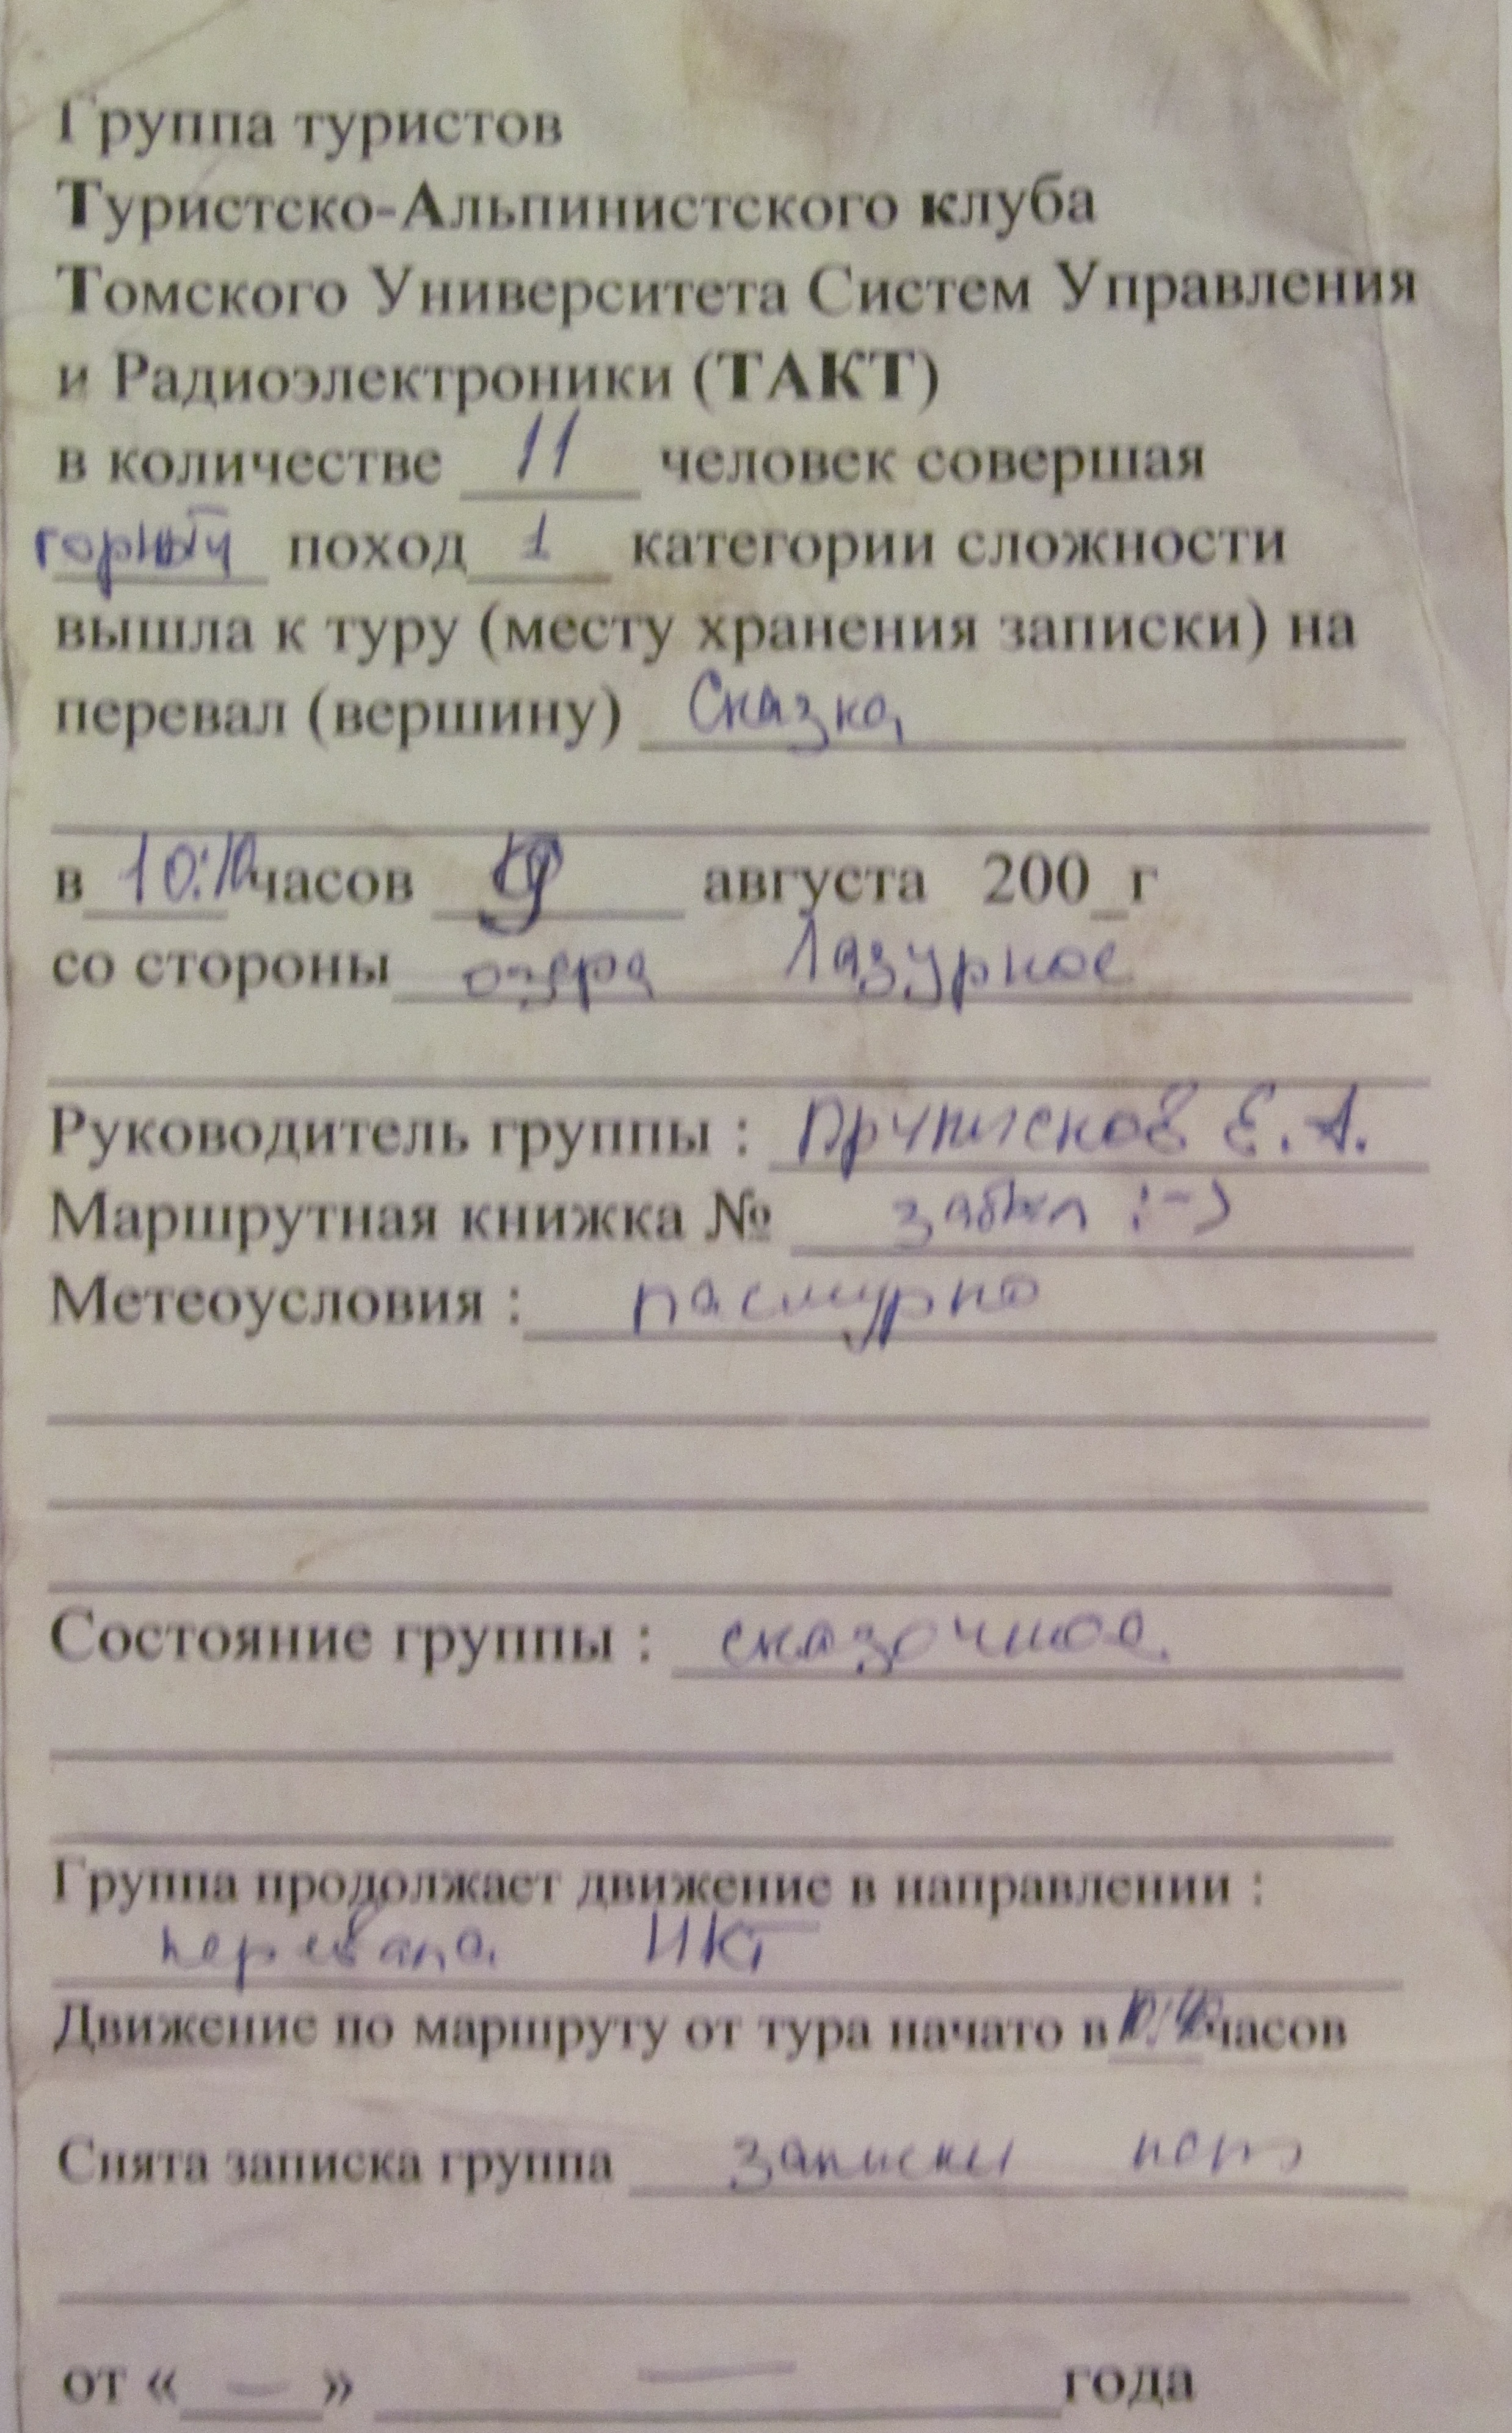 Группа туристов
Туристско-Альпинистского клуба
Томского Университета Систем Управления
и Радиоэлектроники (ТАКТ)
в количестве 11 человек совершая
горный поход 1 категории сложности
вышла к туру (месту хранения записки) на
перевал (вершину) Сказка
в 10:10 часов 9 августа 200_г
со стороны озера Лазурное
Руководитель группы : Е.А.
Маршрутная книжка № забыл :-)
Метеоусловия : пасмурно
Состояние группы : сказочное.
Группа продолжает движение в направлении :
перевала НКТ
Движение по маршруту от тура начато в часов
Снята записка группа записки нет
от « — » — года